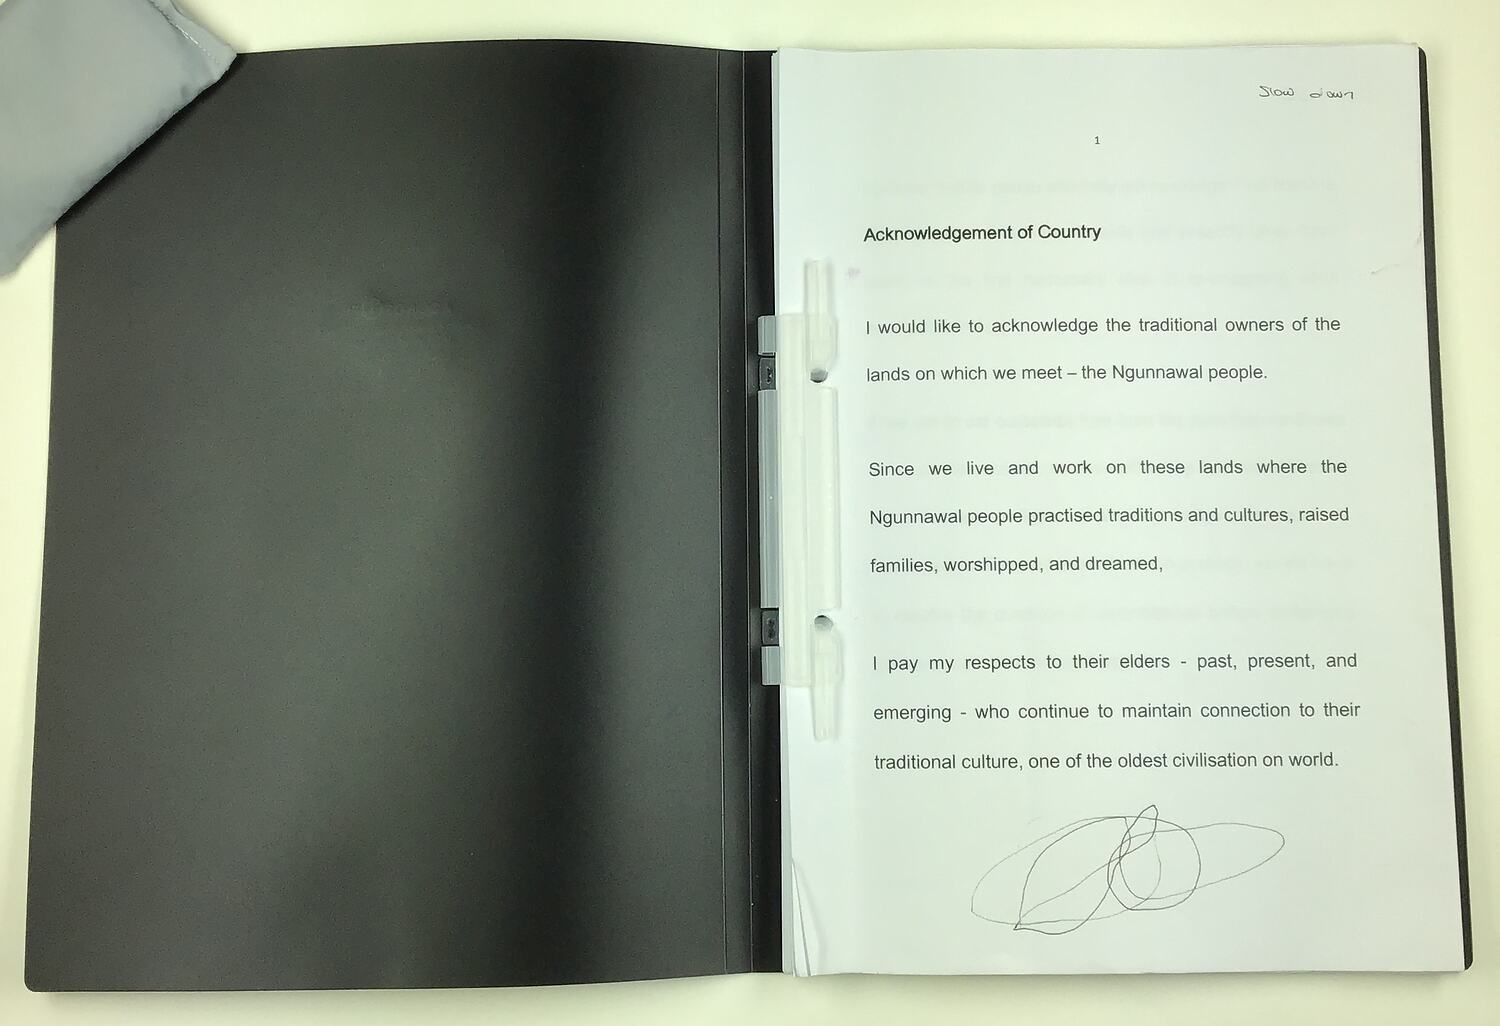 Slow down
1
Acknowledgement of Country
I would like to acknowledge the traditional owners of the
lands on which we meet – the Ngunnawal people.
Since we live and work on these lands where the
Ngunnawal people practised traditions and cultures, raised
families, worshipped, and dreamed,
I pay my respects to their elders - past, present, and
emerging - who continue to maintain connection to their
traditional culture, one of the oldest civilisation on world.